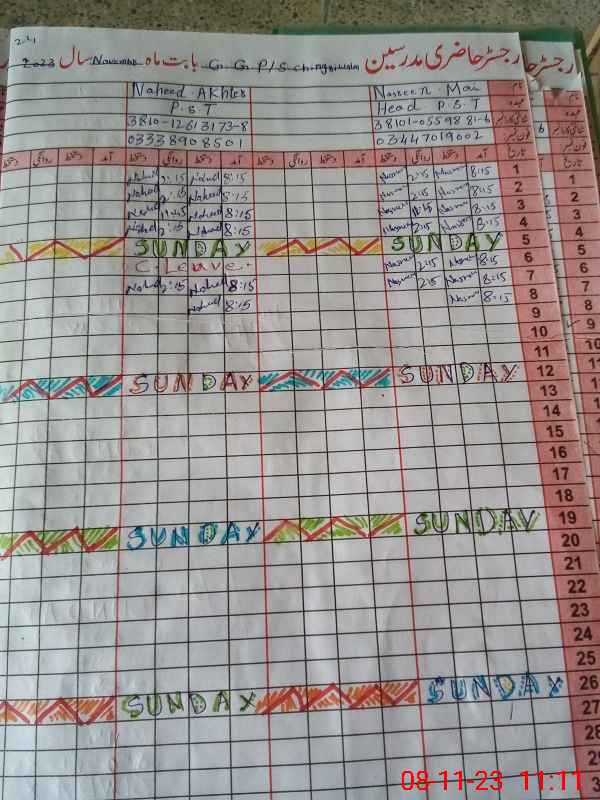 رجسٹر حاضری مدرسین G. G. P/S بابت ماہ November سال 2023
Naheed Akhter Nasreen Mai نام
P.S.T Head P.S.T عہدہ
38101-0559881-6
03338908501 03447019002 فون نمبر
دستخط روانگی دستخط آمد دستخط روانگی دستخط آمد تاریخ
Naheed 2:15 Naheed 8:15 Nasreen 2:15 Nasreen 8:15 1
Naheed 2:15 Naheed 8:15 Nasreen 2:15 Nasreen 8:15 2
Naheed Naheed 8:15 Nasreen Nasreen 8:15 3
Naheed 2:15 Naheed 8:15 Nasreen 2:15 Nasreen 8:15 4
SUNDAY SUNDAY 5
C. Leave. Nasreen 2:15 Nasreen 8:15 6
Naheed 2:15 Naheed 8:15 Nasreen 2:15 Nasreen 8:15 7
Naheed 8:15 Nasreen 8:15 8
9
10
11
SUNDAY SUNDAY 12
13
14
15
16
17
18
SUNDAY SUNDAY 19
20
21
22
23
24
25
SUNDAY SUNDAY 26
27
28
29
08-11-23 11:11